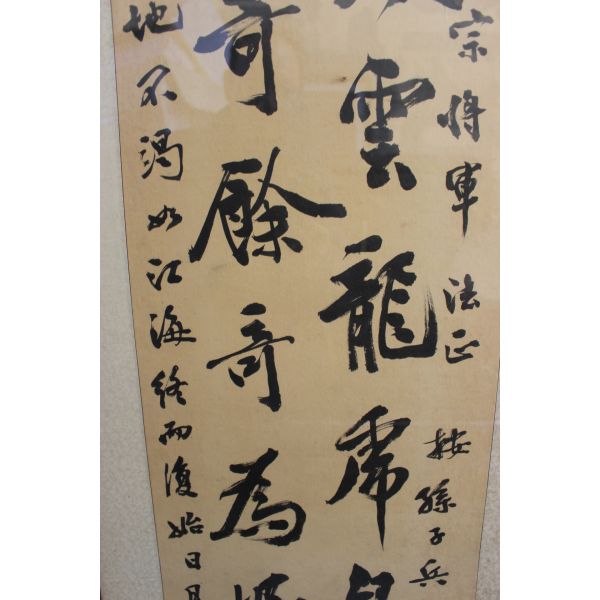 宗将軍 法正 按孫子兵
雲龍虎
奇餘奇為
地不竭如江海終而復始日月